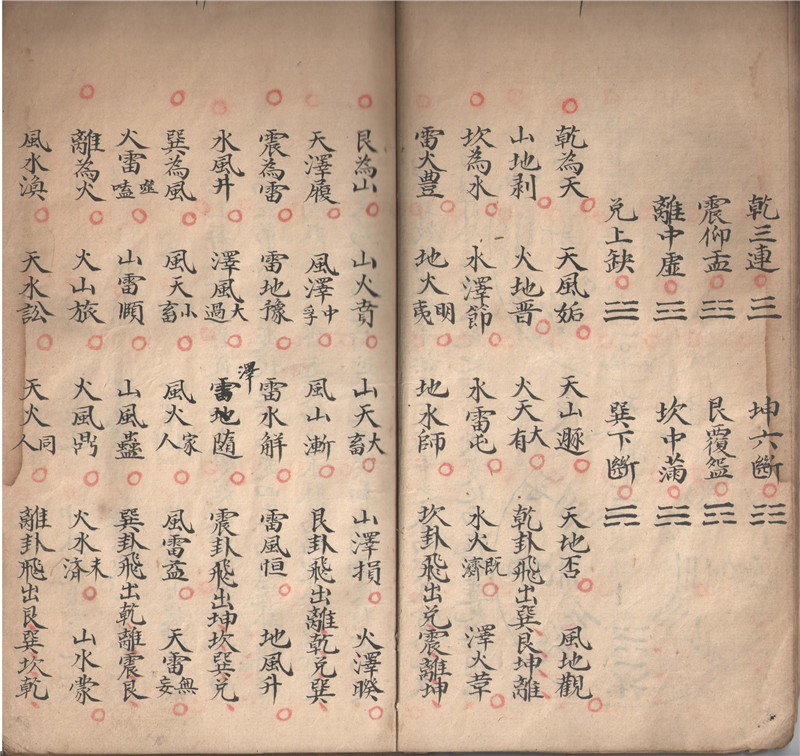 乾三連 ☰ 坤六斷 ☷
震仰盂 ☳ 艮覆盌 ☶
離中虛 ☲ 坎中滿 ☵
兌上缺 ☱ 巽下斷 ☴
乾為天 天風姤 天山遯 天地否 風地觀
山地剥 火地晋 火天大有 乾卦飛出巽艮坤離
坎為水 水澤節 水雷屯 水火既濟 澤火革
雷火豊 地火明夷 地水師 坎卦飛出兌震離坤
艮為山 山火賁 山天大畜 山澤損 火澤睽
天澤履 風澤中孚 風山漸 艮卦飛出離乾兌巽
震為雷 雷地豫 雷水解 雷風恒 地風升
水風升 澤風大過 澤雷地随 震卦飛出坤坎巽兌
巽為風 風天小畜 風火家人 風雷益 天雷無妄
火雷噬嗑 山雷頤 山風蠱 巽卦飛出乾離震艮
離為火 火山旅 火風鼎 火水未済 山水蒙
風水渙 天水訟 天火同人 離卦飛出艮巽坎乾